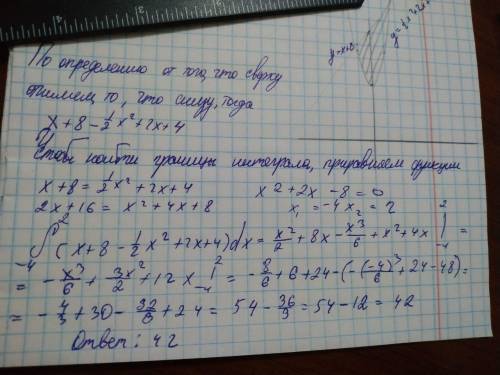 y=x+8
y=½x²+2x+4
По определению от того, что сверху
отнимем то, что снизу, тогда
x+8-½x²+2x+4
Чтобы найти границы интеграла, приравняем функции
x+8=½x²+2x+4 x²+2x-8=0
2x+16=x²+4x+8 x₁=-4 x₂=2
∫₋₄²(x+8-½x²+2x+4)dx=x²/2+8x-x³/6+x²+4x|₋₄²=
=-x³/6+3x²/2+12x|₋₄²=-8/6+6+24-(-(-4)³/6+24-48)=
=-4/3+30-32/3+24=54-36/3=54-12=42
Ответ: 42